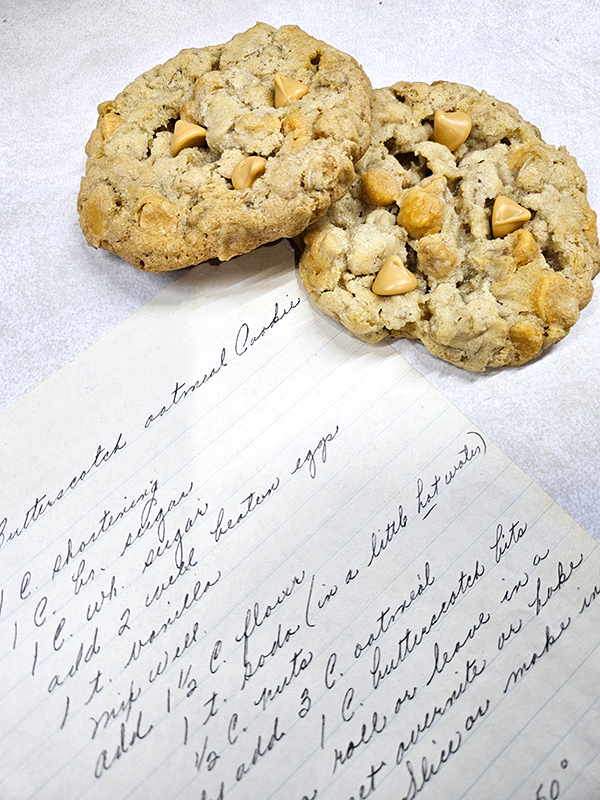 Butterscotch oatmeal Cookie
1 C. shortening
1 C. br. sugar
1 C. wh. sugar
add 2 well beaten eggs
1 t. vanilla
mix well.
add 1 1/2 C. flour
1 t. soda (in a little hot water)
1/2 C. nuts
add 3 C. oatmeal
1 C. butterscotch bits
roll or leave in a
overnite or bake
Slice or make in
50°